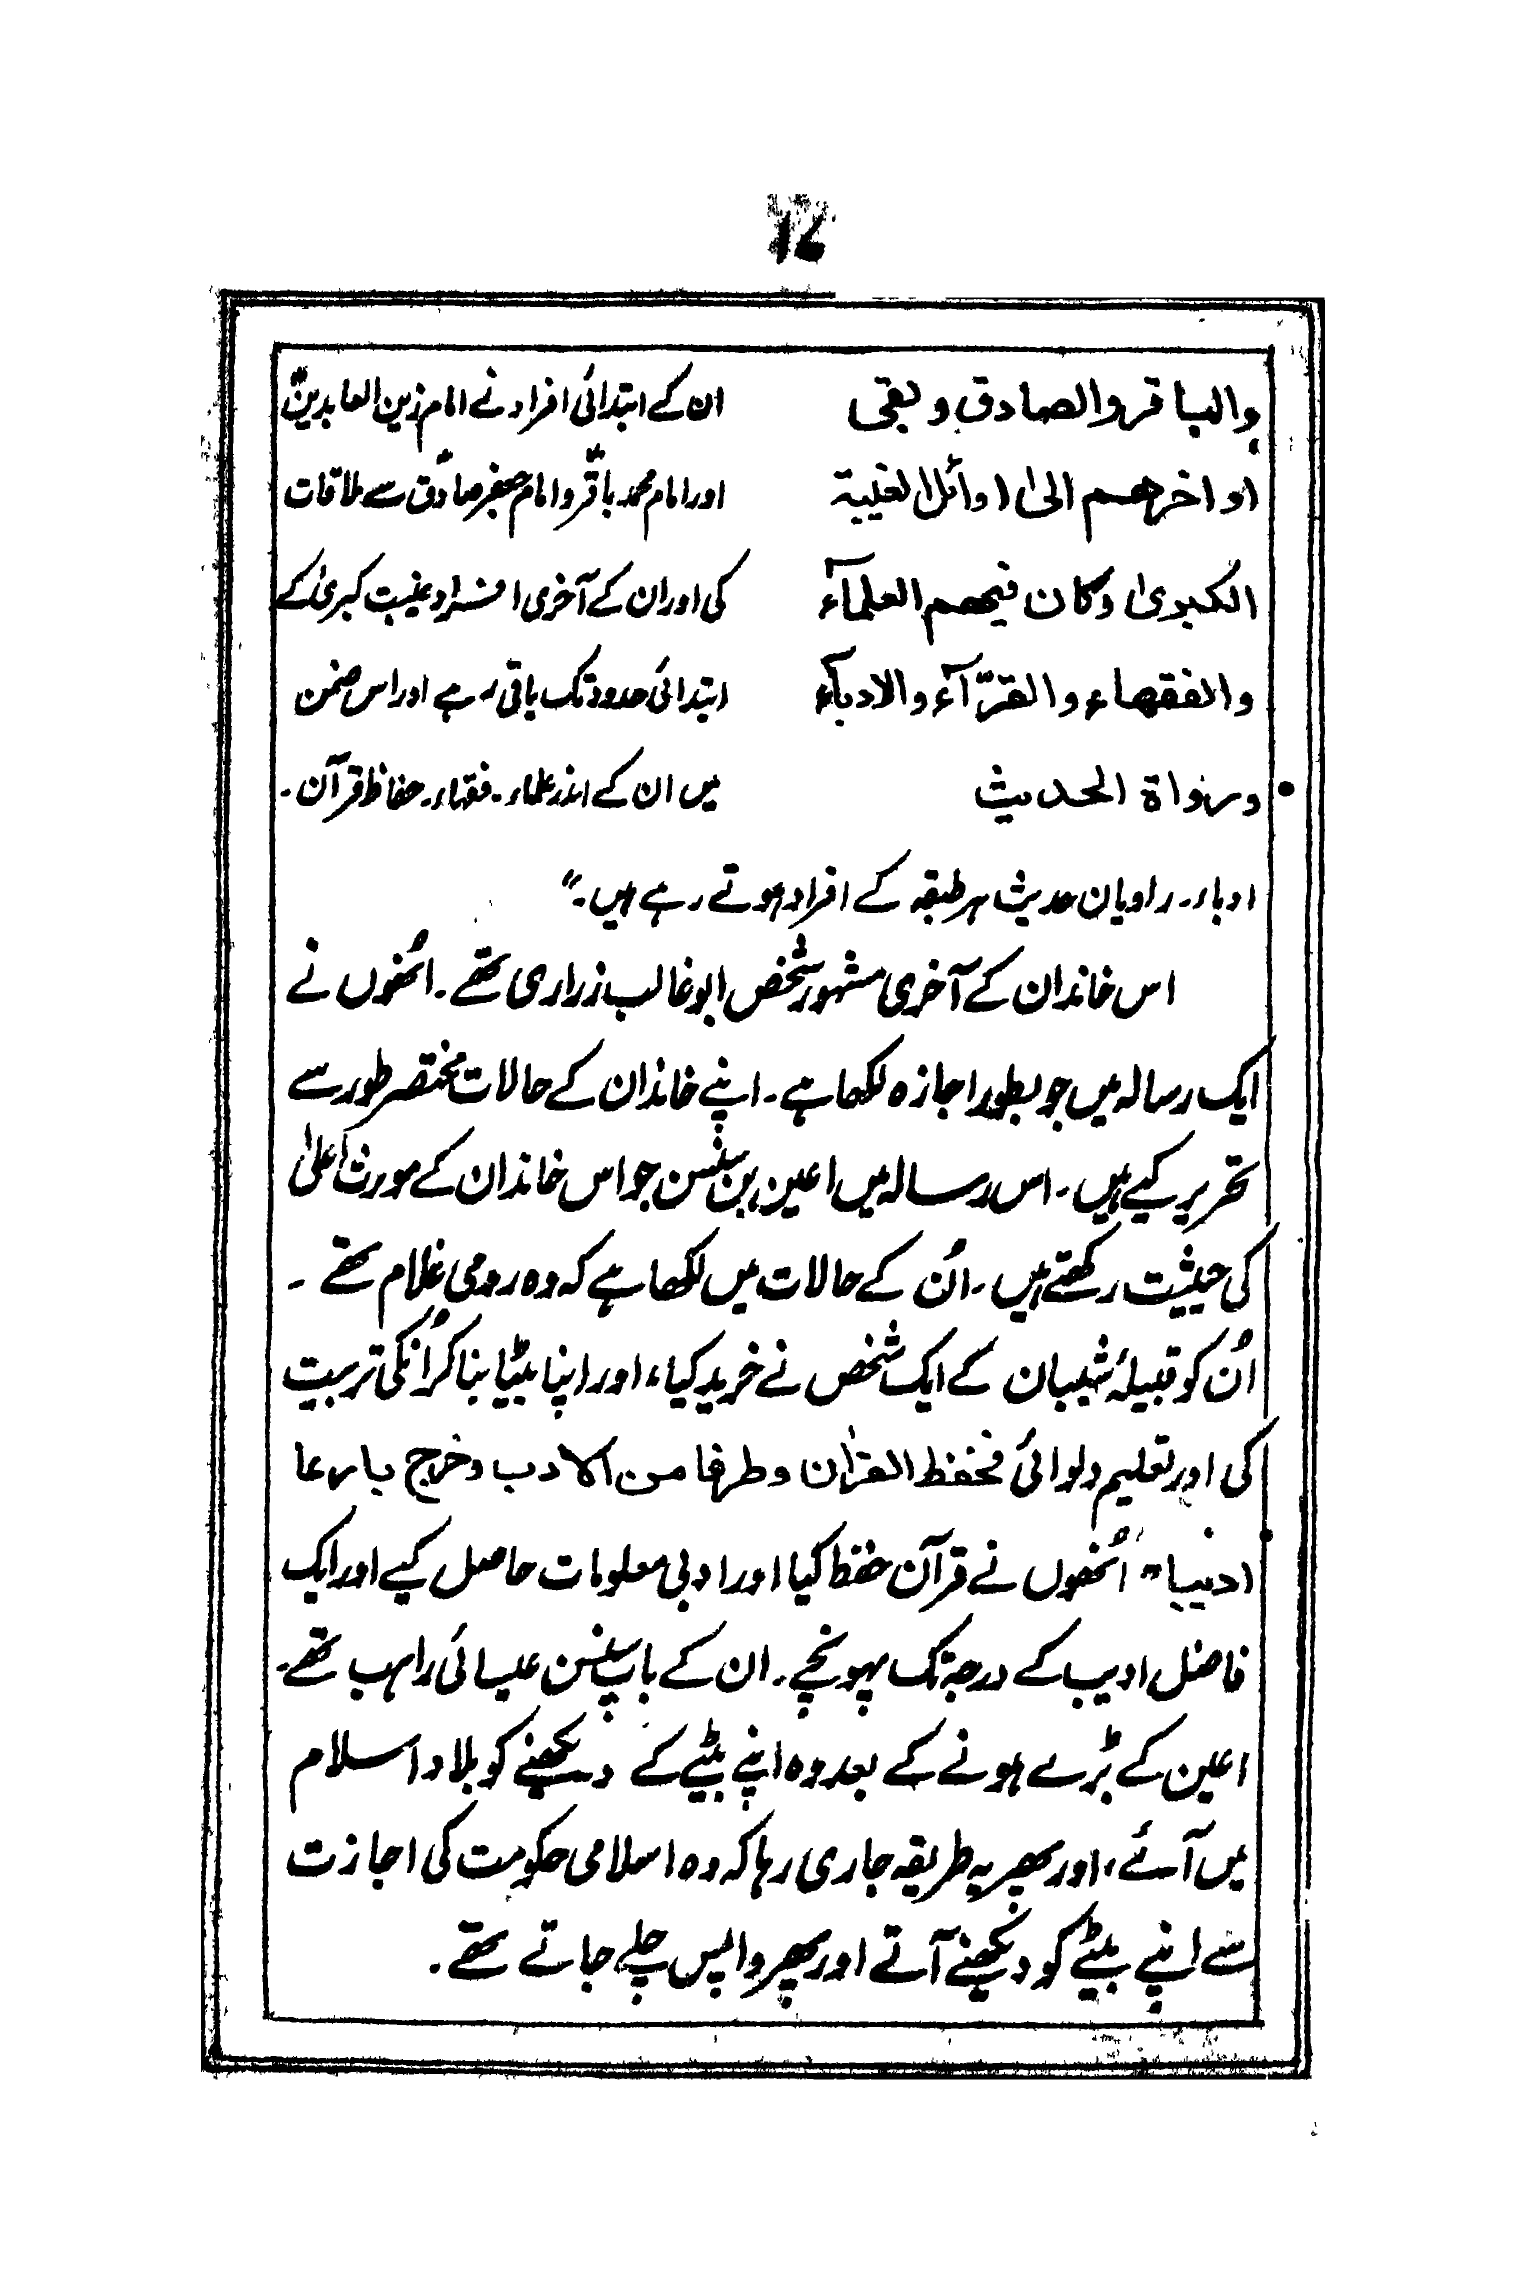 ۱۲
والباقر والصادق وبقی ان کے ابتدائی افراد نے امام زین العابدینؑ
اواخرهم الیٰ اوائل الغیبة اور امام محمد باقرؑ و امام جعفر صادقؑ سے ملاقات
الکبریٰ وکان فیهم العلمآء کی اور ان کے آخری افراد غیبت کبریٰ کے
والفقهاء والقرّآء والادبآء ابتدائی حدود تک باقی رہے اور اس ضمن
ورواة الحدیث میں ان کے اندر علماء ۔ فقہاء ۔ حفاظ قرآن ۔
ادباء ۔ راویان حدیث ہر طبقہ کے افراد ہوتے رہے ہیں ۔"
اس خاندان کے آخری مشہور شخص ابو غالب زراری تھے ۔ اُنھوں نے
ایک رسالہ میں جو بطور اجازہ لکھا ہے ۔ اپنے خاندان کے حالات مختصر طور سے
تحریر کیے ہیں ۔ اس رسالہ میں اعین بن سنسن جو اس خاندان کے مورث اعلیٰ
کی حیثیت رکھتے ہیں ۔ اُن کے حالات میں لکھا ہے کہ وہ رومی غلام تھے ۔
اُن کو قبیلۂ شیبان کے ایک شخص نے خرید کیا، اور اپنا بیٹا بنا کر اُنکی تربیت
کی اور تعلیم دلوائی فحفظ القرٰان وطرفا من الادب وخرج بارعا
ادیبا" اُنھوں نے قرآن حفظ کیا اور ادبی معلومات حاصل کیے اور ایک
فاضل ادیب کے درجہ تک پہونچے ۔ ان کے باپ سنسن عیسائی راہب تھے ۔
اعین کے بڑے ہونے کے بعد وہ اپنے بیٹے کے دیکھنے کو بلاد اسلام
میں آئے، اور پھر یہ طریقہ جاری رہا کہ وہ اسلامی حکومت کی اجازت
سے اپنے بیٹے کو دیکھنے آتے اور پھر واپس چلے جاتے تھے ۔